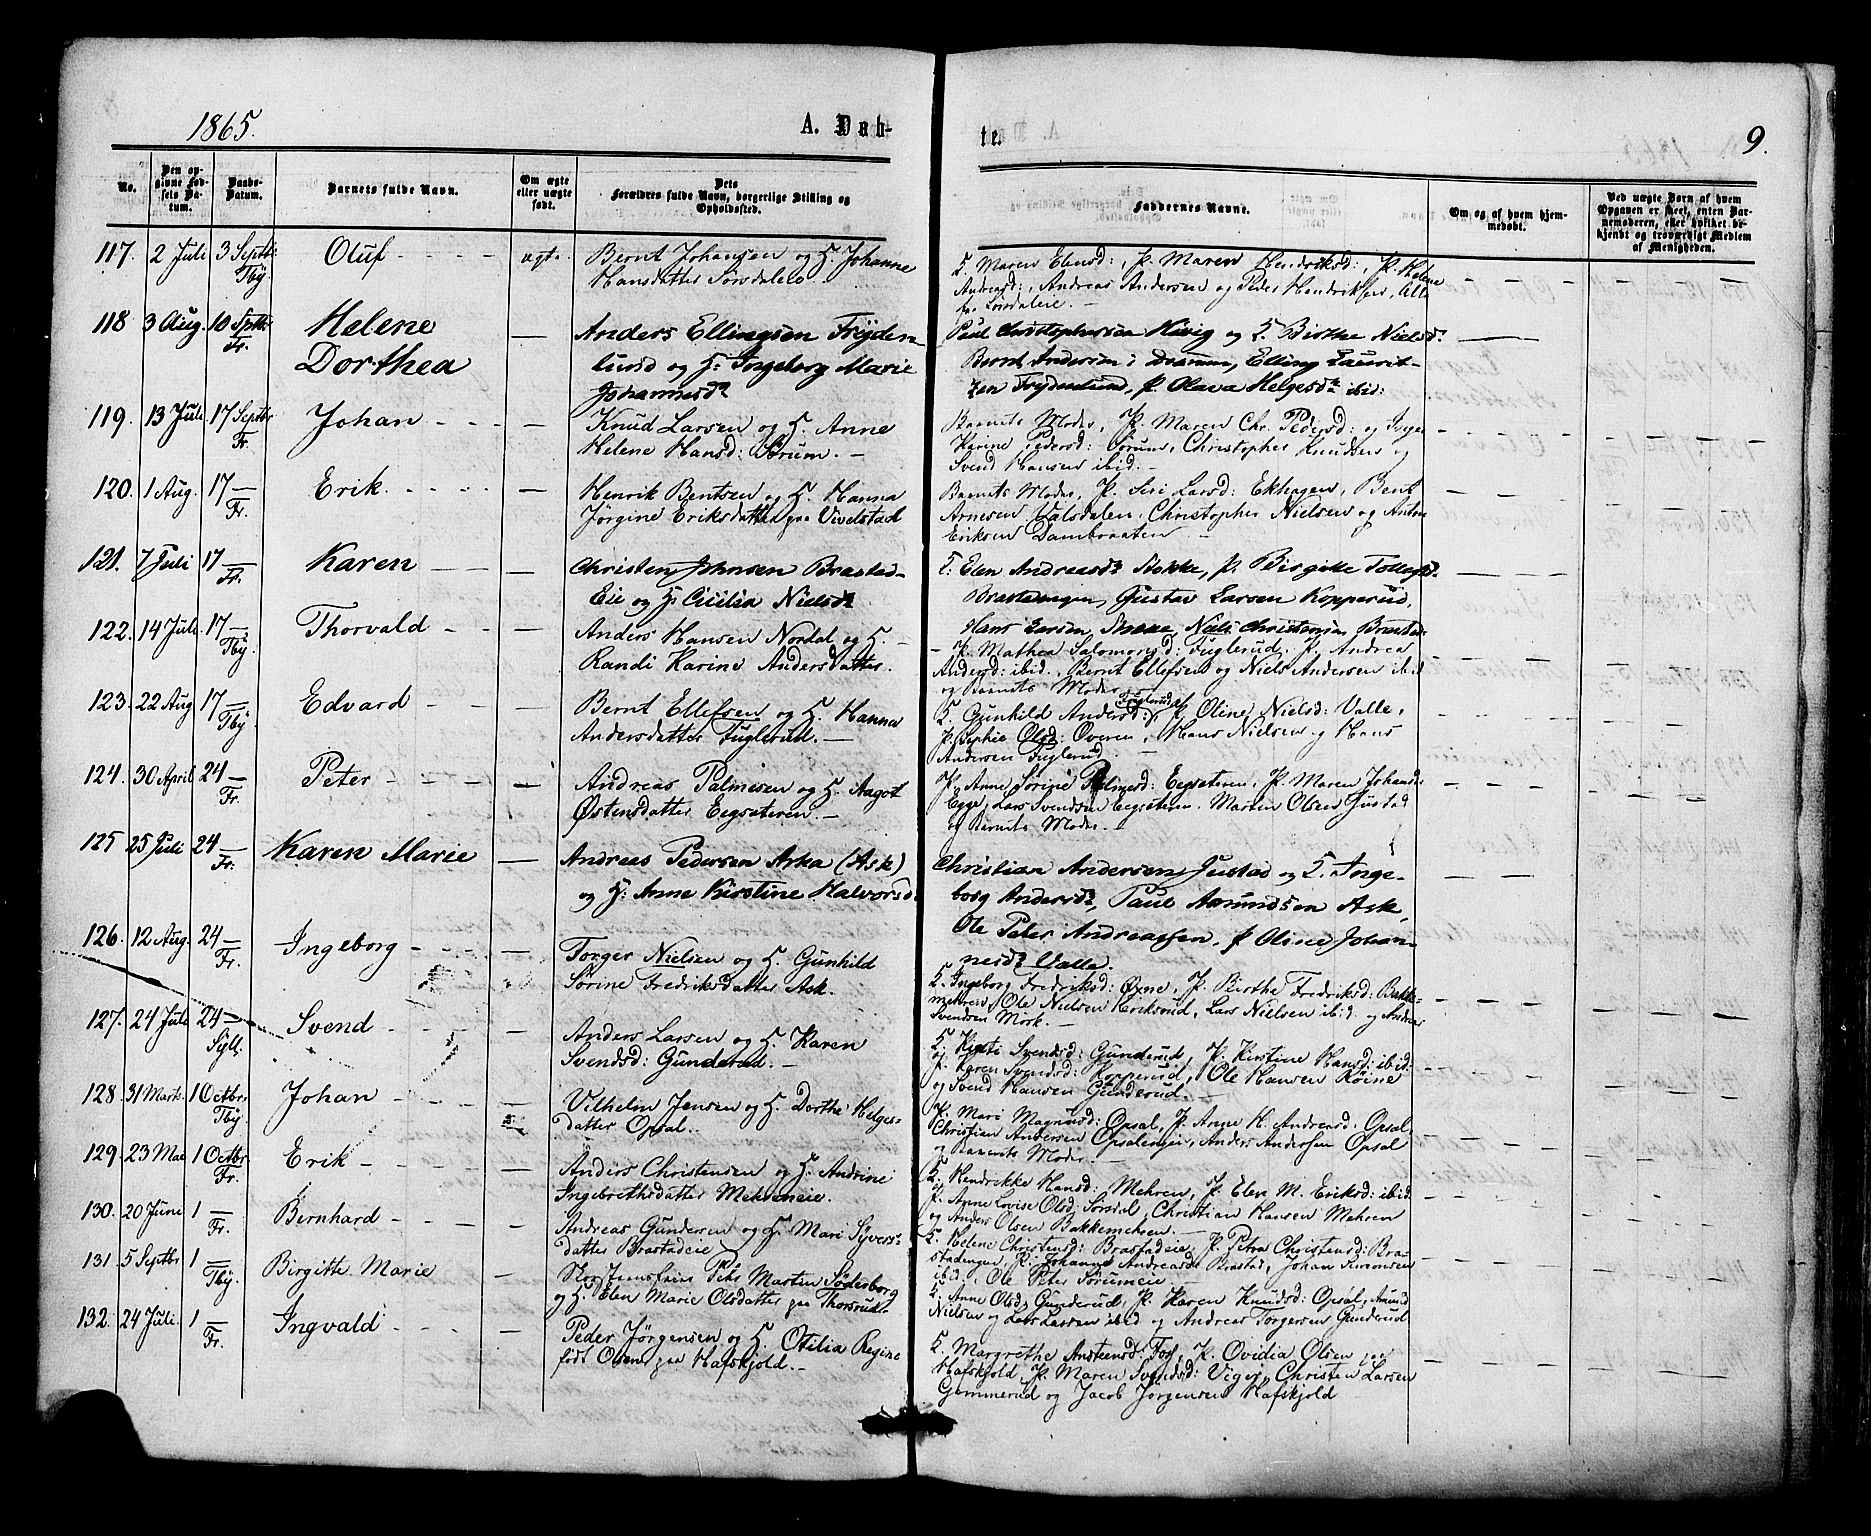 1865.
A. Døbte.
9.
No.
Den opgivne Fødsels Datum.
Daabs-Datum.
Barnets fulde Navn.
Om ægte eller uægte født.
Dets Forældres fulde Navn, borgerlige Stilling og Opholdssted.
Faddernes Navne.
Om og af hvem hjemmedøbt.
Ved uægte Børn af hvem Opgaven er skeet, enten Barnemoderen, eller hvilket bekjendt og troværdigt Medlem af Menigheden.
117. 2 Juli 3 Septbr Tby Oluf ægte
Bernt Johansen og H. Johanne
Hansdatter Sørsdaleie.
Maren Elensd:, P. Maren Hendriksd:, P. Helene
Andreasd:, Andreas Andersen og Peder Hendriksen, Alle
fr. Sørsdaleie.
118 3 Aug. 10 Sptbr Fr. Helene
Dorthea
Anders Ellingsen Fryden-
lund og H: Ingeborg Marie
Johannesdr
Paul Christophersen Kinig og K. Birthe Nielsd:
Bernt Andersen i Drammen, Elling Laurit-
zen Frydenlund, P. Olava Helgesdr ibid:
119. 13 Juli 17 Septbr Fr. Johan
Knud Larsen og H. Anne
Helene Hansd: Sørum.
Barnets Moder, P. Maren Chr. Pedersd: og Inger
Karine Pedersd: Sørum, Christopher Knudsen og
Svend Hansen ibid.
120. 1 Aug. 17 Fr. Erik
Henrik Bentsen og H. Hanna
Jørgine Eriksdatter paa Vivelstad
Barnets Moder, P. Siri Larsd: Ekhagen, Bent
Arnesen Valsdalen, Christopher Nielsen og Anton
Eriksen Dambraaten
121. 7 Juli 17 Fr. Karen
Christen Johnsen Brastad-
Eie og H. Cicilia Nielsdr
K: Elen Andreasdr Stokke, P. Birgitte Tollefsd:
Brastadengen, Gustav Larsen Kopperud,
Hans Larsen, Niels Christensen Brastad
122. 14 Juli 17 Tby. Thorvald
Anders Hansen Nordal og H.
Randi Karine Andersdatter.
P. Mathea Salomonsd: Fuglerud, P. Andrea
Andersd: ibid., Bernt Ellefsen og Niels Andersen ibid
og Barnets Moder
123. 22 Aug 17 Tby. Edvard
Bernt Ellefsen og H. Hanna
Andersdatter Fuglerud.
K. Gunhild Andersd: Fuglerud, P. Oline Nielsd: Valle,
P. Sophie Olsd: Overen, Hans Nielsen og Hans
Andersen Fuglerud
124. 30 April 24 Fr. Peter
Andreas Palmesen og H. Aagot
Østensdatter Eegsæteren.
P. Anne Sorine Palmesd: Eegsæteren, P. Maren Johansd:
Egge, Lars Svendsen Eegsæteren, Marten Olsen Gustad
og Barnets Moder.
125 25 Juli 24 Fr. Karen Marie
Andreas Pedersen Aska (Ask)
og H: Anne Kirstine Halvorsd.
Christian Andersen Gustad og K. Inge-
borg Andersdr, Paul Amundsen Ask,
Ole Peter Andreassen, P Oline Johan-
nesdr Valle.
126. 12 Aug. 24 Fr. Ingeborg
Torger Nielsen og H. Gunhild
Sørine Fredriksdatter Ask.
K. Ingeborg Fredriksd: Øxne, P. Birthe Fredriksd: Bakke-
mehren, Ole Nielsen Heriksrud, Lars Nielsen ibid. og Andreas
Svendsen Mork.
127. 24 Juli 24 Syll. Svend
Anders Larsen og H. Karen
Svendsd: Gunderud.
K. Kirsti Svendsd: Gunderud, P. Kirstine Hansd: ibid:
P. Karen Svendsd: Kopperud, Ole Hansen Röine
og Svend Hansen Gunderud.
128. 31 Marts. 1 Octbr. Tby. Johan
Vilhelm Jensen og H. Dorthe Helges-
datter Opsal.
P. Mari Magnusd: Opsal, P. Anne H. Andreasd. Opsal,
Christian Andersen Opsalengen, Anders Andersen Opsal
og Barnets Moder.
129. 23 Mai 1 Octbr. Fr. Erik
Anders Christensen og H. Andrine
Ingebrethsdatter Mehreneie.
K. Hendrikke Hansd: Mehren, P. Elen M. Eriksd: ibid.
P. Anne Lovise Olsd: Sørsdal, Christian Hansen Mehren
og Anders Olsen Bakkemehren.
130. 20 Juni 1 Fr. Bernhard
Andreas Gundersen og H. Mari Syvers-
datter Brastadeie
K. Helene Christensd: Brastadeie, P. Petra Christensd: Bra-
stadengen, P. Johanne Andreasd: Brastad, Johan Simonsen
ibid, Ole Peter Sørumeie
131. 5 Septbr 1 Tby. Birgitte Marie
Peter Marten Söderborg
og H. Elen Marie Olsdatter paa Thorsrud.
K. Anne Olsd: Gunderud, P. Karen Knudsd: Opsal, Amund
Nielsen og Lars Larsen ibid og Andreas Torgersen Gunderud
132. 24 Juli. 1 Fr. Ingvald
Peder Jörgensen og H. Otilia Regine
født Olsen paa Hafskjold.
K. Margrethe Ansteensd: Fos, P. Ovidia Olsen paa
Hafskjold, P. Maren Svendsd: Viger, Christen Larsen
Gommerud og Jacob Jørgensen Hafskjold